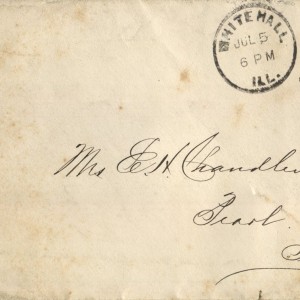 WHITEHALL
JUL 5
6 PM
ILL.
E. H. Chandler
Pearl